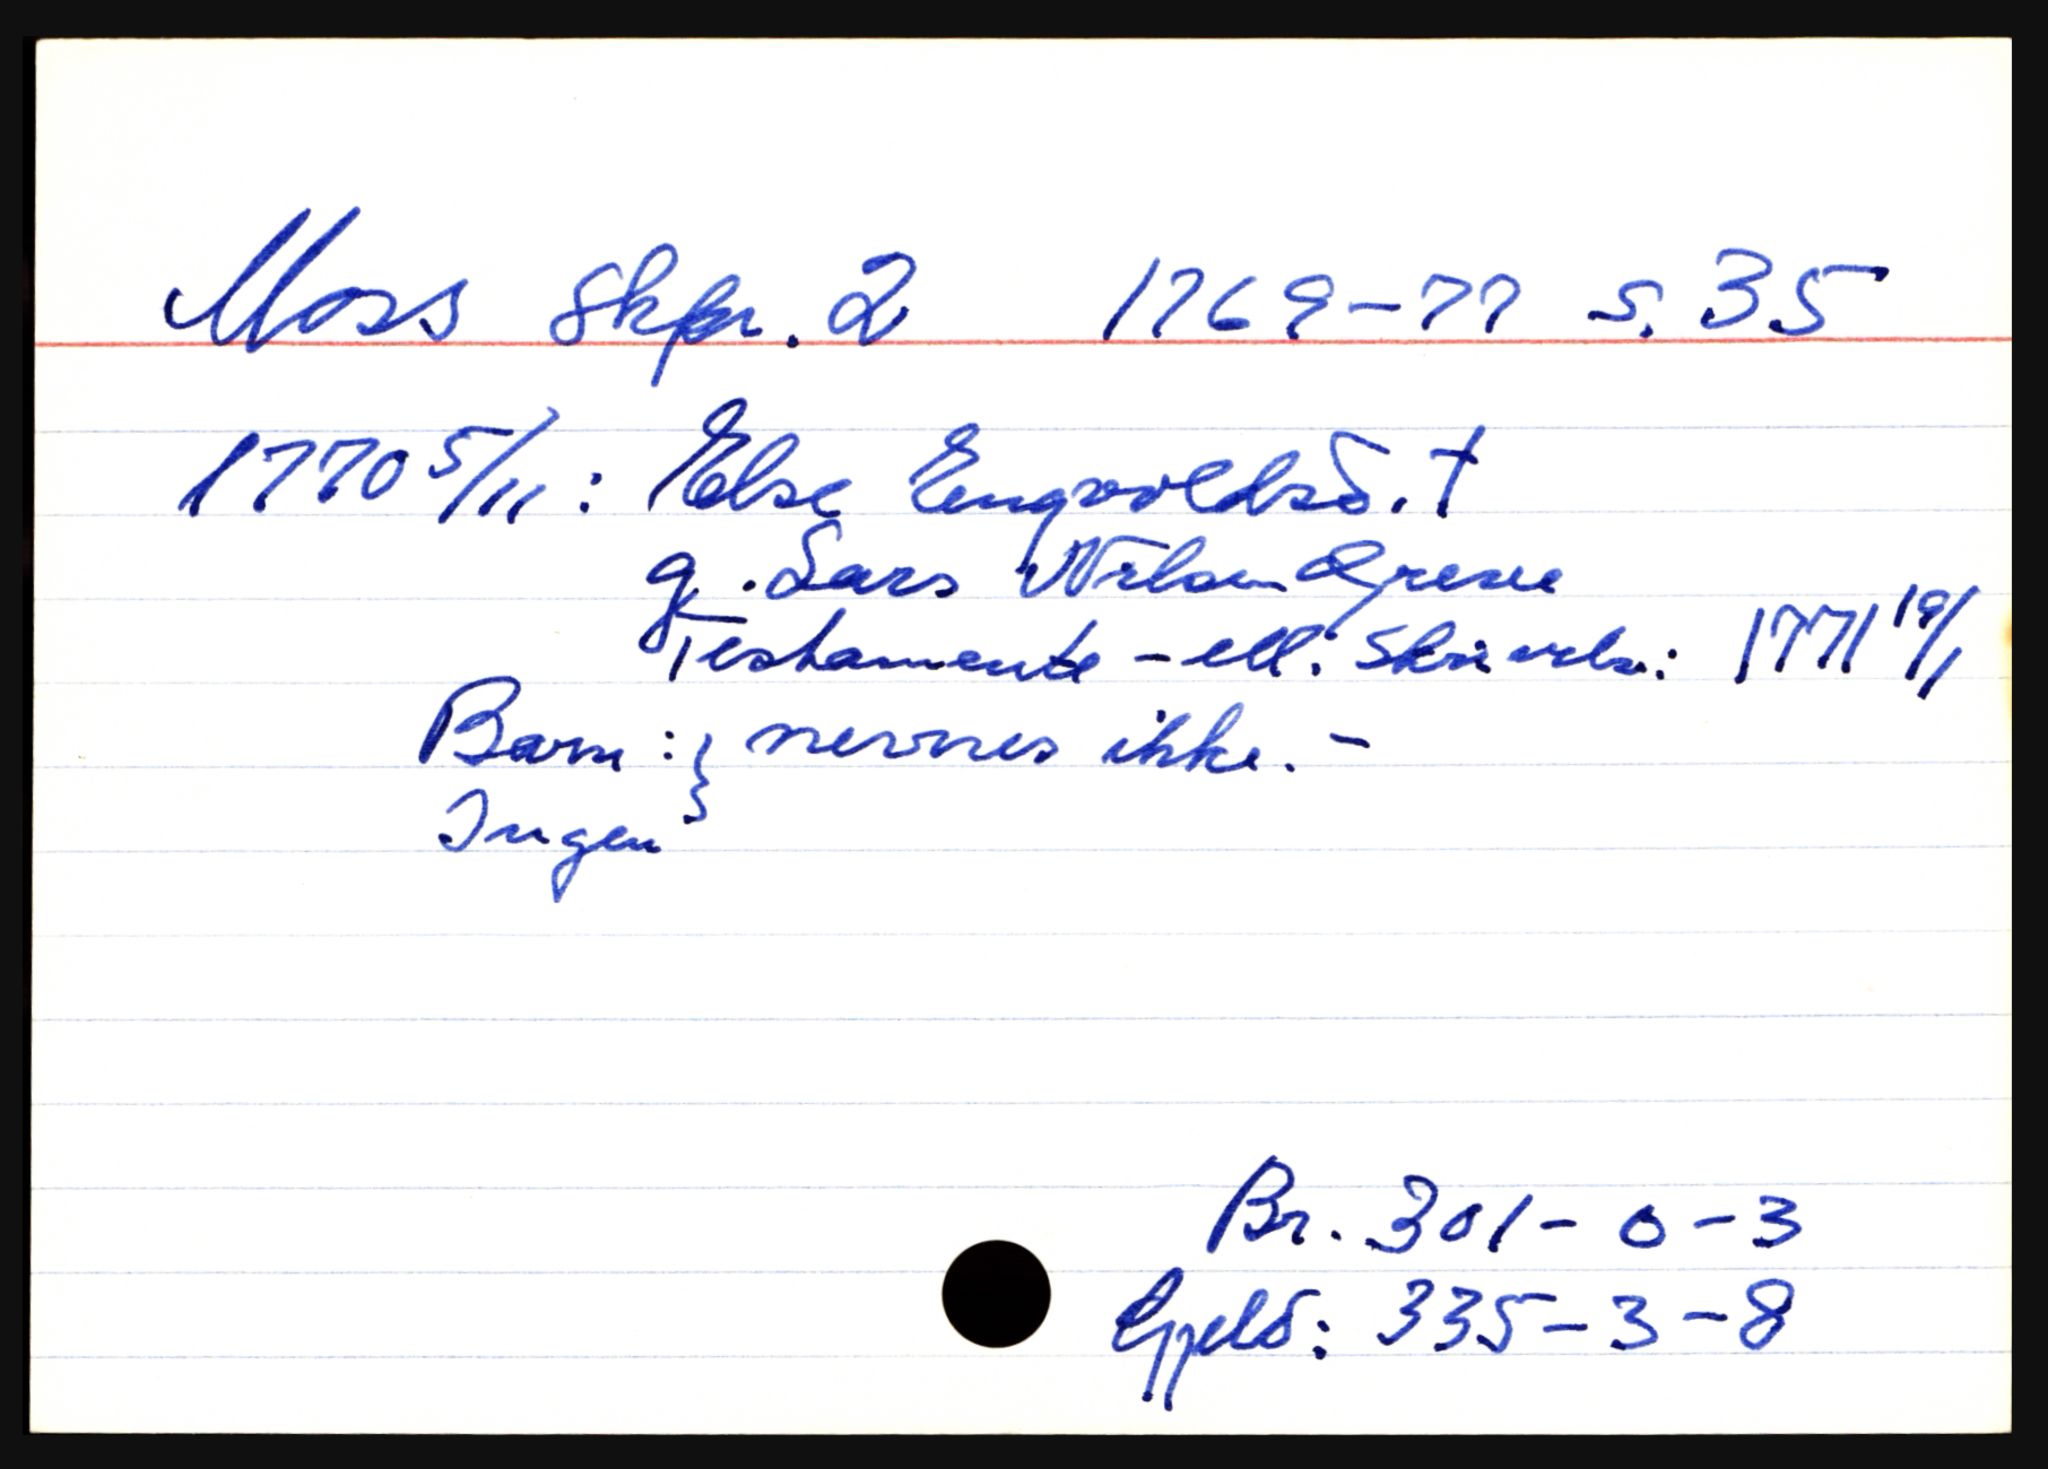 Moss Skpr. 2 1769-77 s. 35
1770 5/11: Else Engvoldsd. †
g. Lars Nilsen Grene
Testamente - ell. Skrivels: 1771 19/1
Barn: } nevnes ikke. -
Ingen
Br. 301 - 0 - 3
Gjeld: 335 - 3 - 8